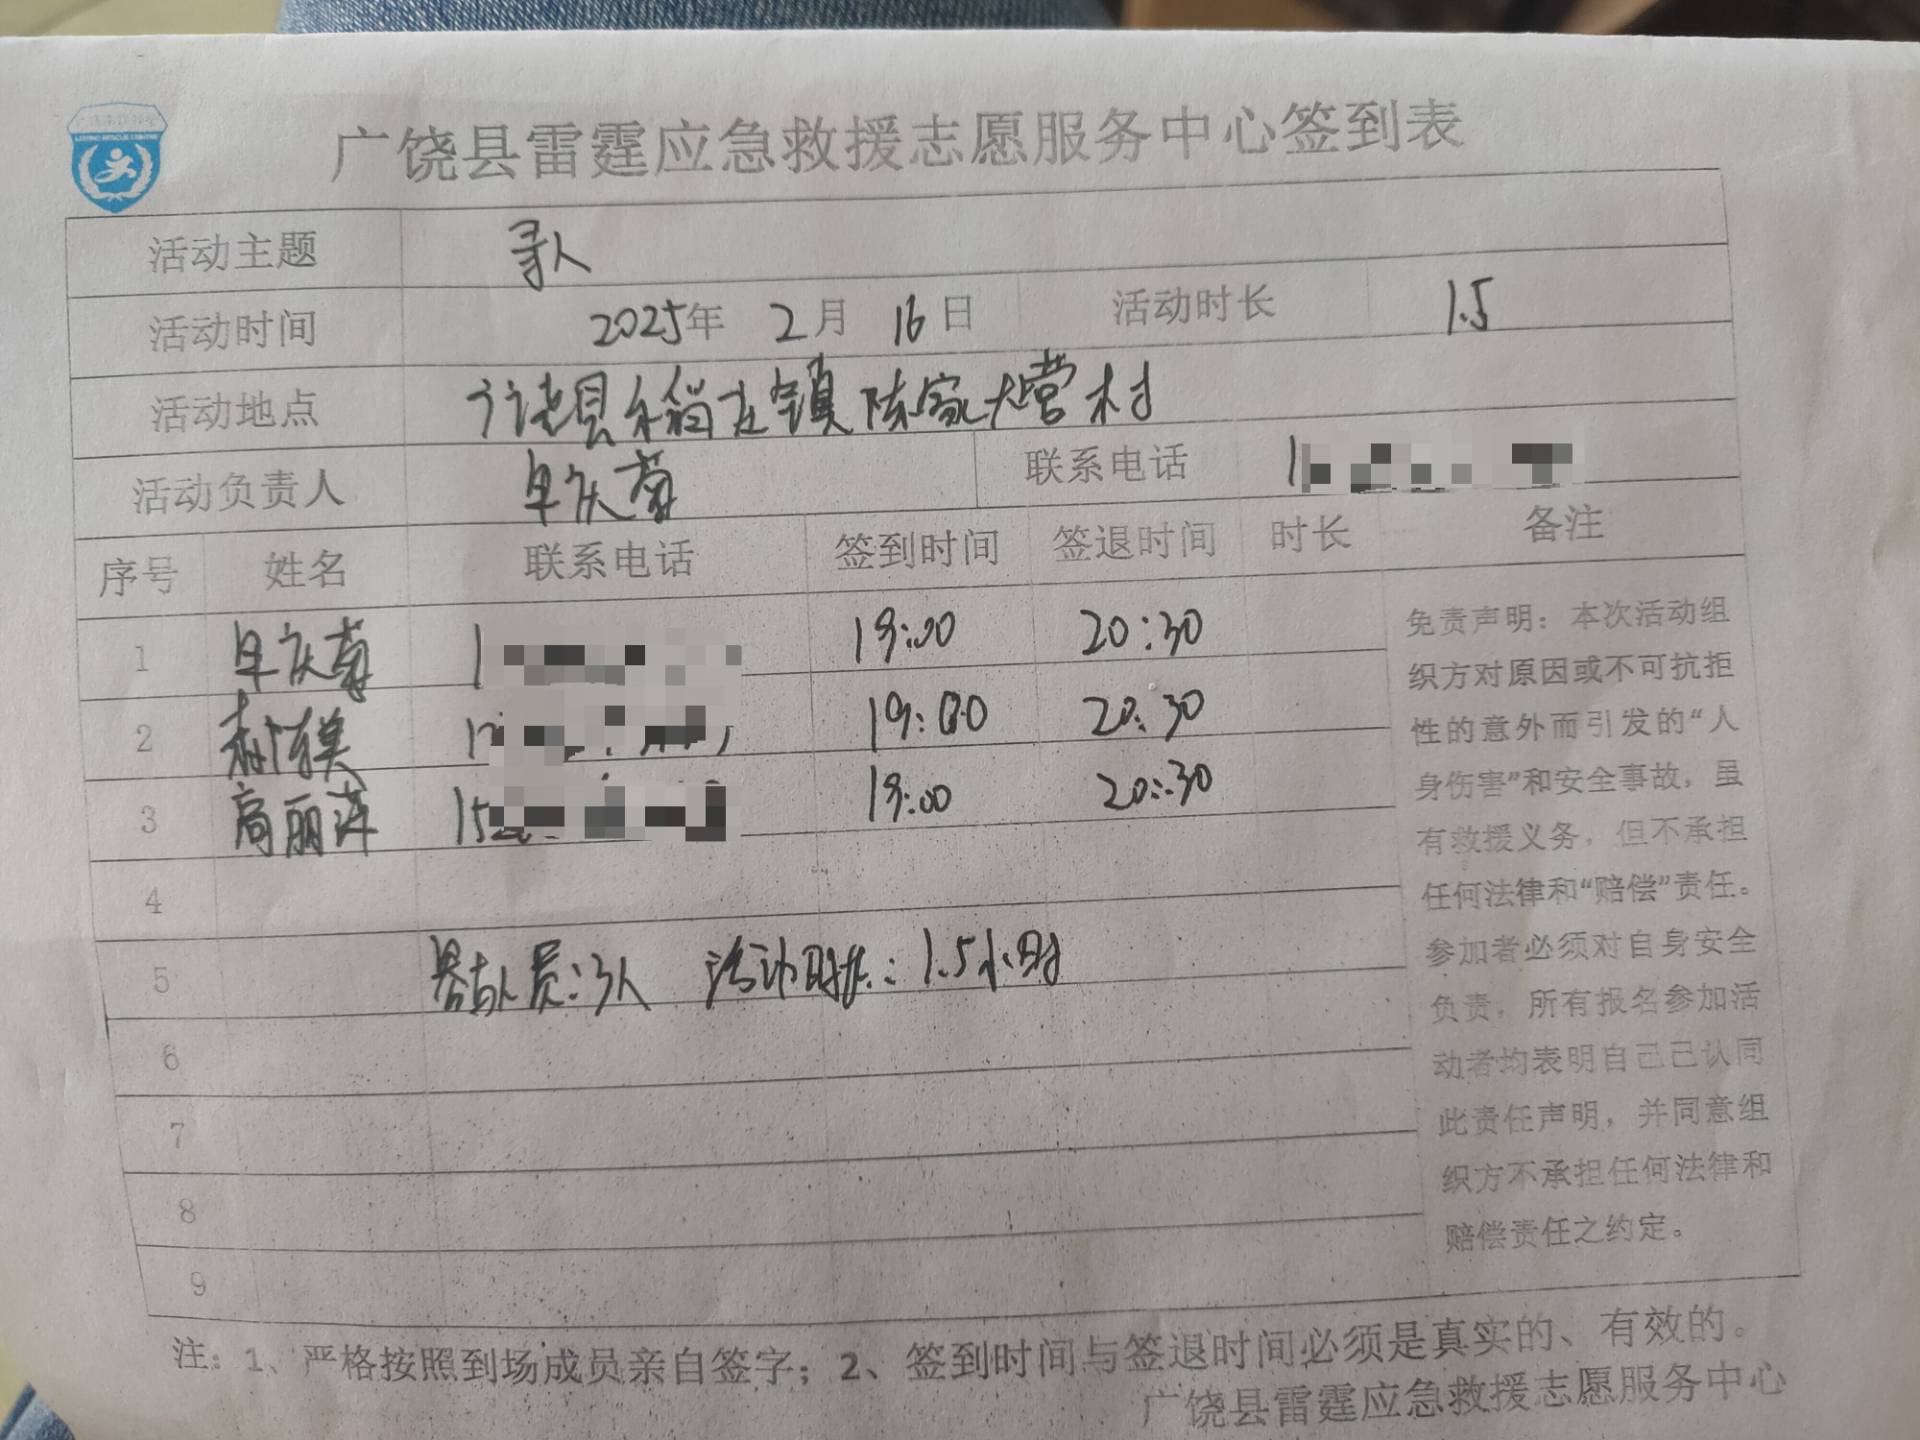 广饶县雷霆应急救援志愿服务中心签到表
活动主题 寻人
活动时间 2025年 2月 16日 活动时长 1.5
活动地点 广饶县稻庄镇陈家大营村
活动负责人 联系电话 1
序号 姓名 联系电话 签到时间 签退时间 时长 备注
1 1 19:00 20:30
2 1 19:00 20:30
3 高丽萍 15 19:00 20:30
4
5 参与人员:3人 活动时长:1.5小时
6
7
8
9
免责声明：本次活动组
织方对原因或不可抗拒
性的意外而引发的“人
身伤害”和安全事故，虽
有救援义务，但不承担
任何法律和“赔偿”责任。
参加者必须对自身安全
负责，所有报名参加活
动者均表明自己已认同
此责任声明，并同意组
织方不承担任何法律和
赔偿责任之约定。
注：1、严格按照到场成员亲自签字；2、签到时间与签退时间必须是真实的、有效的。
广饶县雷霆应急救援志愿服务中心